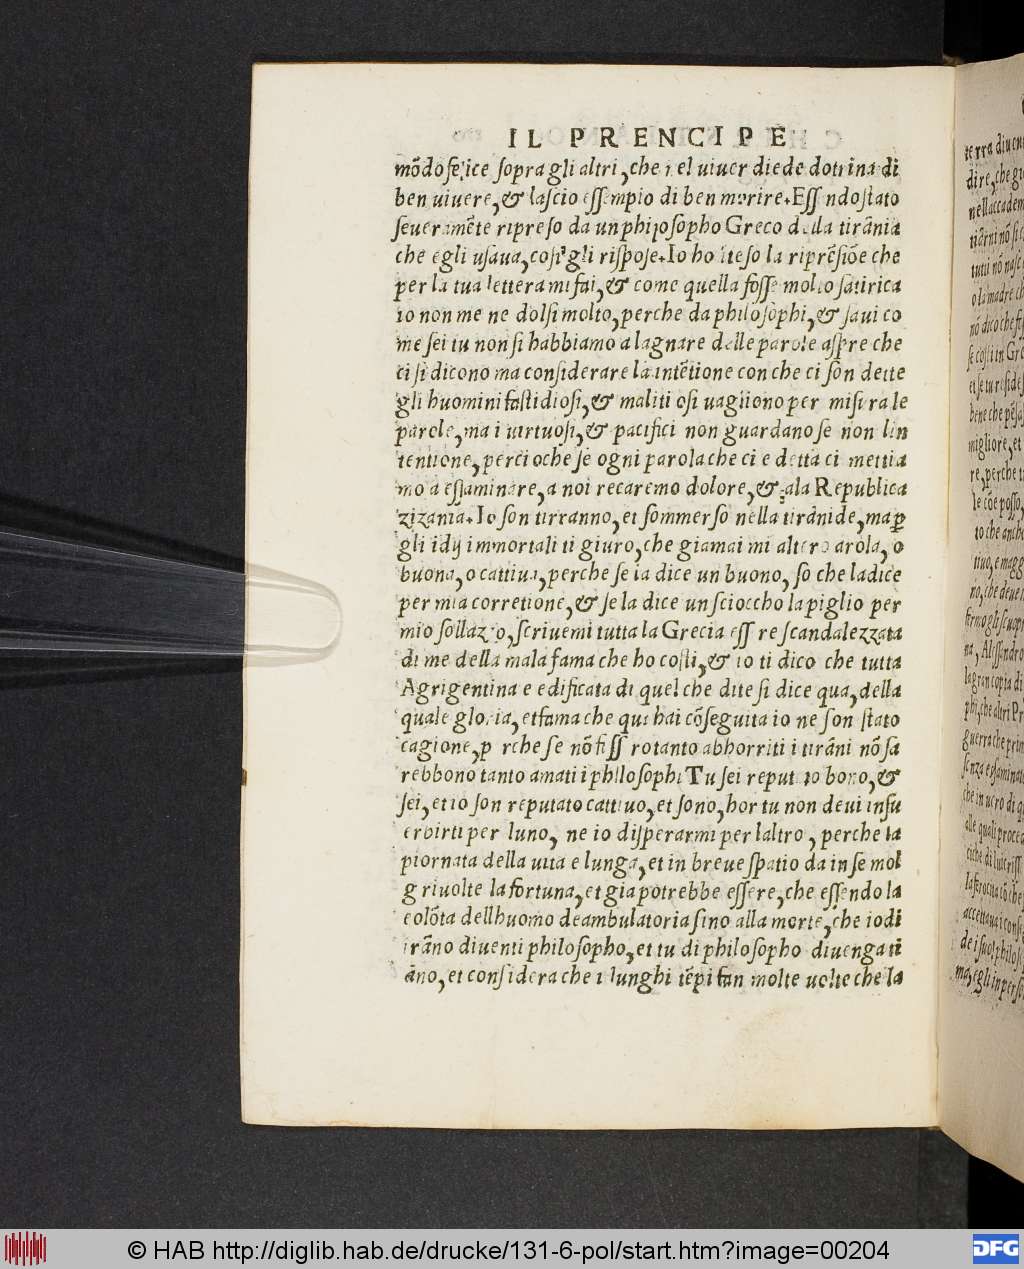 IL PRENCIPE
mōdo felice sopra gli altri, che nel viuer diede dotrina di
ben uiuere, & lascio essempio di ben morire. Essendo stato
seueramēte ripreso da un philosopho Greco della tirānia
che egli usaua, cosi gli rispose. Io ho īteso la riprēsiōe che
per la tua lettera mi fai, & come quella fosse molto satirica
io non me ne dolsi molto, perche da philosophi, & saui co
me sei tu non si habbiamo a lagnare delle parole aspre che
ci si dicono ma considerare la intētione con che ci son dette
gli huomini fastidiosi, & malitiosi uagliono per misura le
parole, ma i uirtuosi, & pacifici non guardano se non lin
tentione, percioche se ogni parola che ci e detta ci mettia
mo a essaminare, a noi recaremo dolore, & ala Republica
zizania. Io son tirranno, et sommerso nella tirānide, ma ꝑ
gli idij immortali ti giuro, che giamai mi altero arola, o
buona, o cattiua, perche se la dice un buono, so che la dice
per mia corretione, & se la dice un scioccho la piglio per
mio sollazzo, scriuemi tutta la Grecia ess re scandalezzata
di me della mala fama che ho costi, & io ti dico che tutta
Agrigentina e edificata di quel che dite si dice qua, della
quale gloria, et fama che qui hai cōseguita io ne son stato
cagione, p rche se nō fiss ro tanto abhorriti i tirāni nō sa
rebbono tanto amati i philosophi Tu sei reput to bono, &
sei, et io son reputato cattiuo, et sono, hor tu non deui insu
erbirti per luno, ne io disperarmi per laltro, perche la
piornata della uita e lunga, et in breue spatio da in se mol
g riuolte la fortuna, et gia potrebbe essere, che essendo la
eolōta dellhuomo deambulatoria sino alla morte, che io di
irāno diuenti philosopho, et tu di philosopho diuenga ti
āno, et considera che i lunghi tēpi fan molte uolte che la
© HAB http://diglib.hab.de/drucke/131-6-pol/start.htm?image=00204
DFG